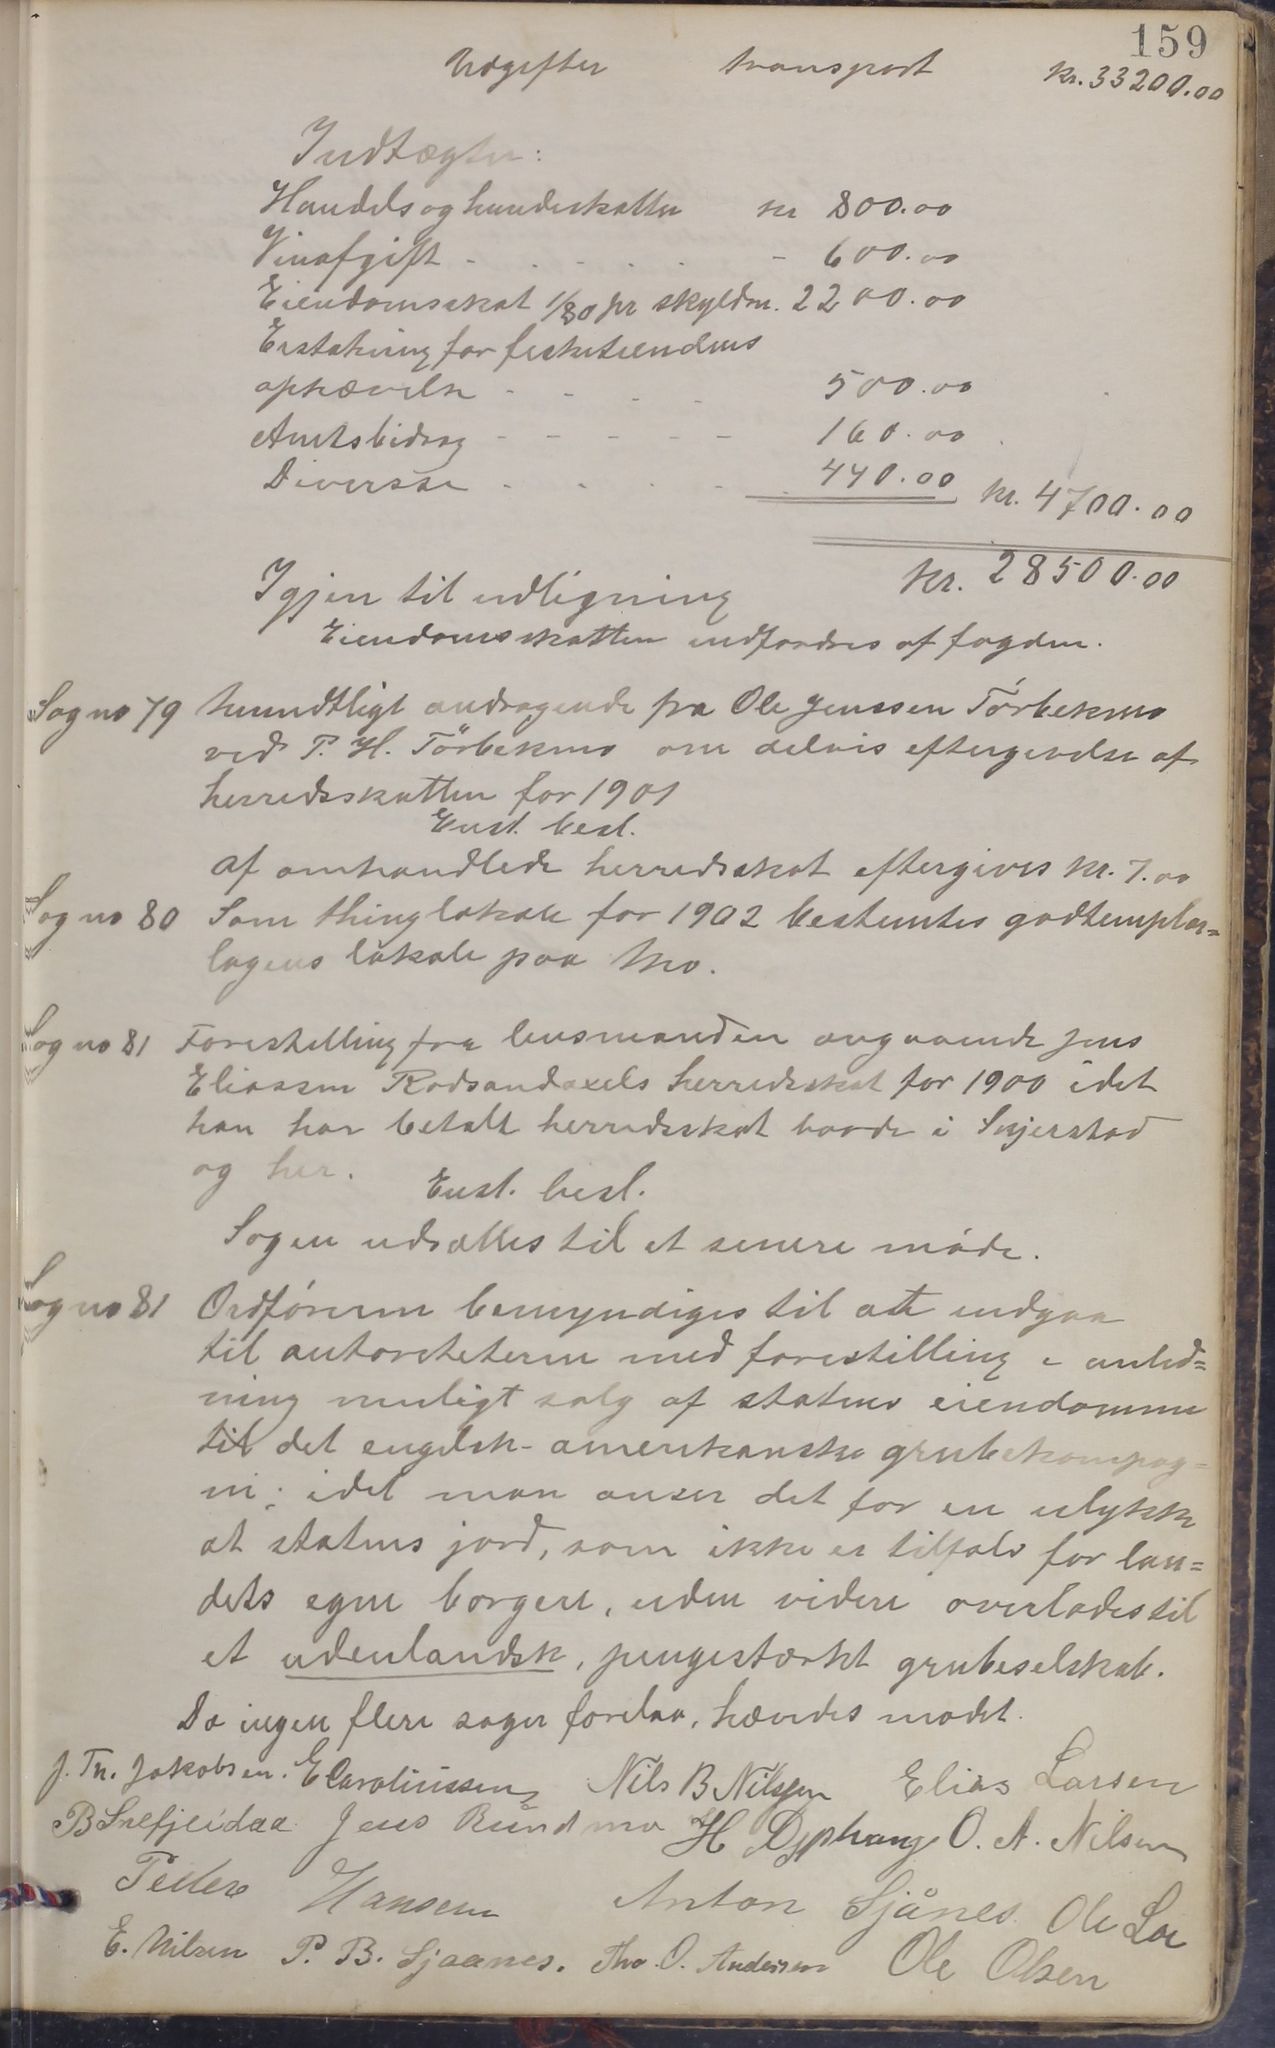 159
Udgifter transport kr. 33200.00
Indtægter:
Handels og hundeskatter kr 800.00
Vinafgift - - - - - - 600.00
Eiendomsskat 1/80 pr skyldm. 2200.00
Erstatning for fisketiendens
ophævelse - - - - 500.00
Amtsbidrag - - - - - 160.00
Diversse - - - - - 440.00 kr. 4700.00
Igjen til udligning kr. 28500.00
Eiendomsskatten indfordres af fogden.
Sag no 79 Mundtligt andragende fra Ole Jenssen Tørbekmo
ved P. H. Törbekmo om delvis eftergivelse af
herredsskatten for 1901
Enst. besl.
Af omhandlede herredsskat eftergives kr. 7.00
Sag no 80 Som thinglokale for 1902 bestemtes godtemplar=
logens lokale paa Mo.
Sag no 81 Forestilling fra lensmanden angaaende Jens
Eliassen Rødsandaxels herredsskat for 1900 idet
han har betalt herredsskat baade i Skjerstad
og her. Enst. besl.
Sagen udsættes til et senere møde.
Sag no 81 Ordføreren bemyndiges til att indgaa
til autoriteterne med forestilling i anled=
ning muligt salg af statens eiendomme
til det engelsk-amerikanske grubekompag=
ni; idet man anser det for en ulykke
at statens jord, som ikke er tilfals for lan=
dets egne borgere, uden videre overlades til
et udenlandsk, pengestærkt grubeselskab.
Da ingen flere sager forelaa, hævedes mødet.
J. Th. Jakobsen. E Caroliussen Nils B Nilssen Elias Larsen
B Snefjeldaa Jens Rundmo H Dyphaug O. A. Nilsen
Peder Hansen Anton Sjånes Ole
E. Nilsen P. B. Sjaanes. Tho. O. Andersen Ole Olsen